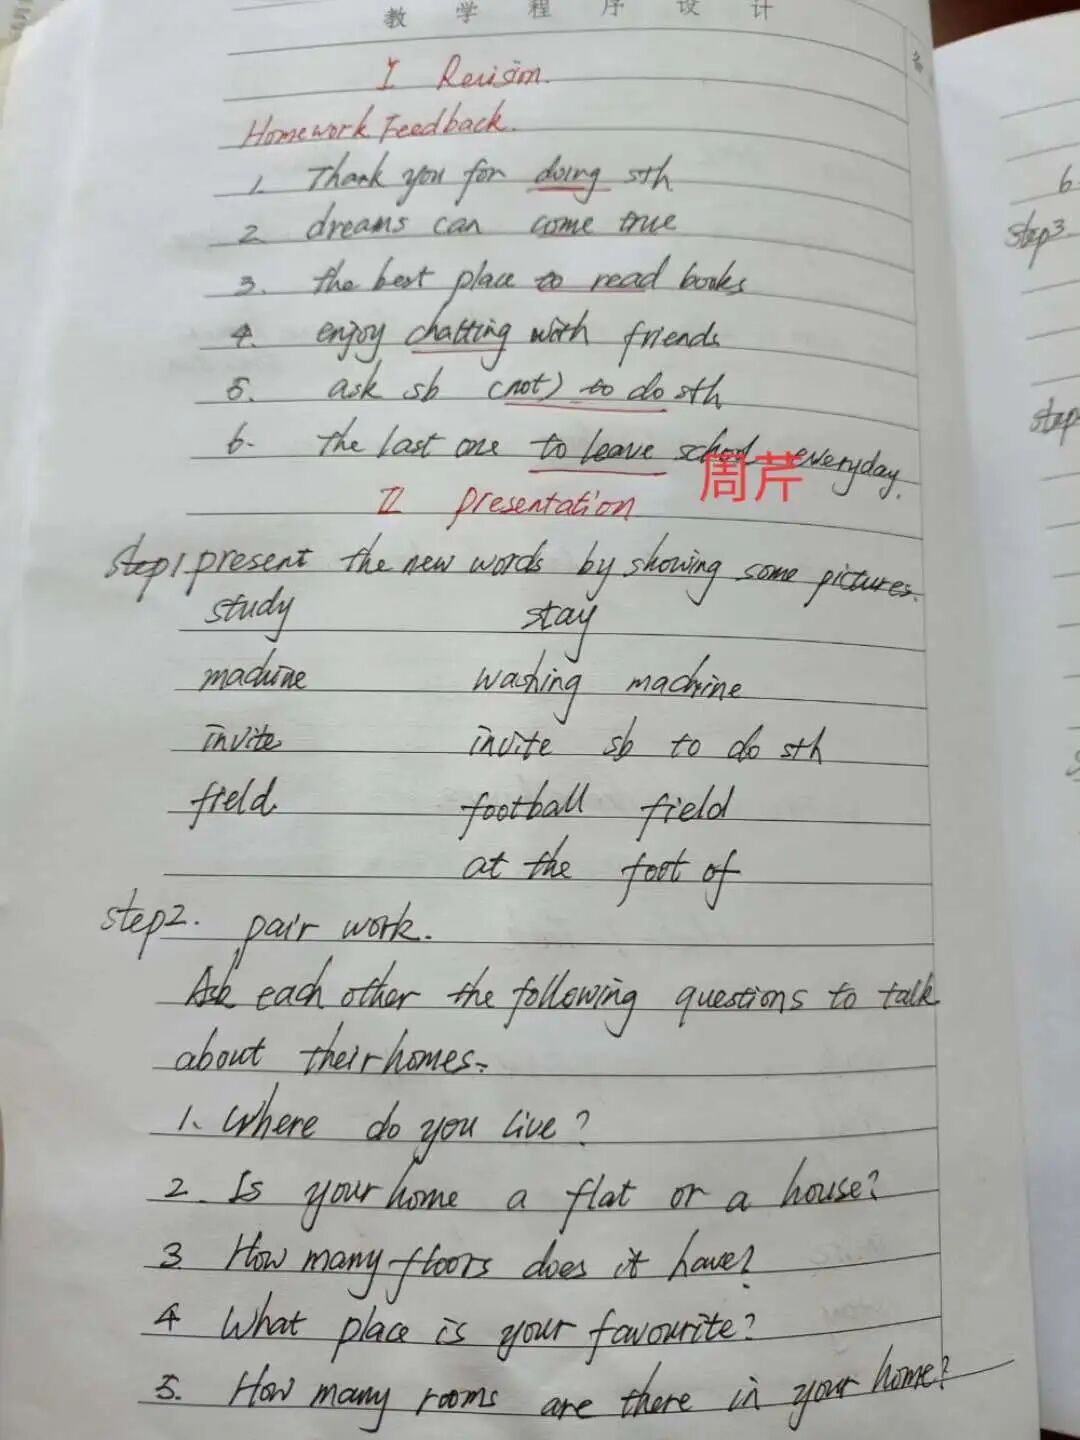 教学程序设计
I Revision.
Homework Feedback.
1. Thank you for doing sth
2. dreams can come true
3. the best place to read books
4. enjoy chatting with friends
5. ask sb (not) to do sth
6. the last one to leave school everyday.
周芹
II presentation
step1. present the new words by showing some pictures.
study stay
machine washing machine
invite invite sb to do sth
field football field
at the foot of
step2. pair work.
Ask each other the following questions to talk
about their homes.
1. Where do you live?
2. Is your home a flat or a house?
3 How many floors does it have?
4 What place is your favourite?
5. How many rooms are there in your home?
6.
step3.
step